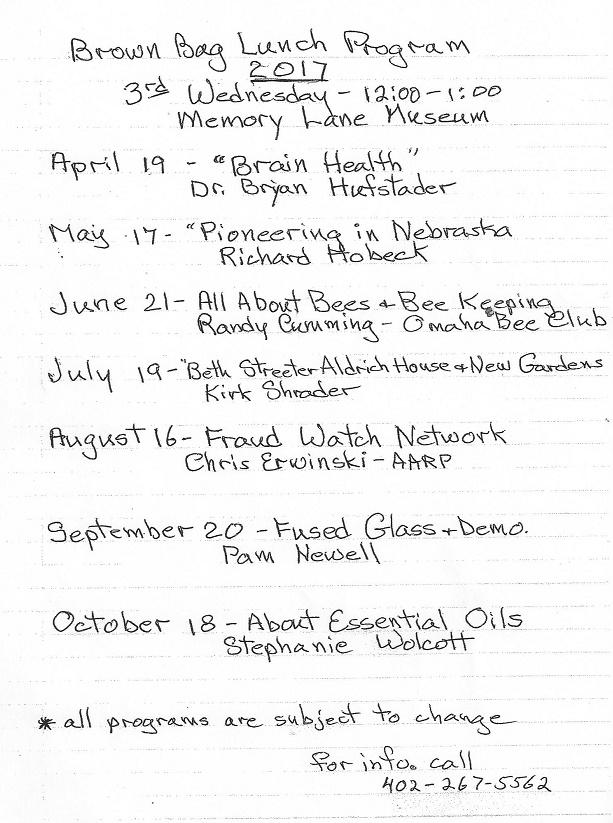 Brown Bag Lunch Program
2017
3rd Wednesday - 12:00 - 1:00
Memory Lane Museum
April 19 - "Brain Health"
Dr. Bryan Hufstader
May 17 - "Pioneering in Nebraska
Richard Hobeck
June 21 - All About Bees + Bee Keeping
Randy Cumming - Omaha Bee Club
July 19 - "Beth Streeter Aldrich House + New Gardens
Kirk Shrader
August 16 - Fraud Watch Network
Chris Erwinski - AARP
September 20 - Fused Glass + Demo.
Pam Newell
October 18 - About Essential Oils
Stephanie Wolcott
* all programs are subject to change
for info. call
402-267-5562